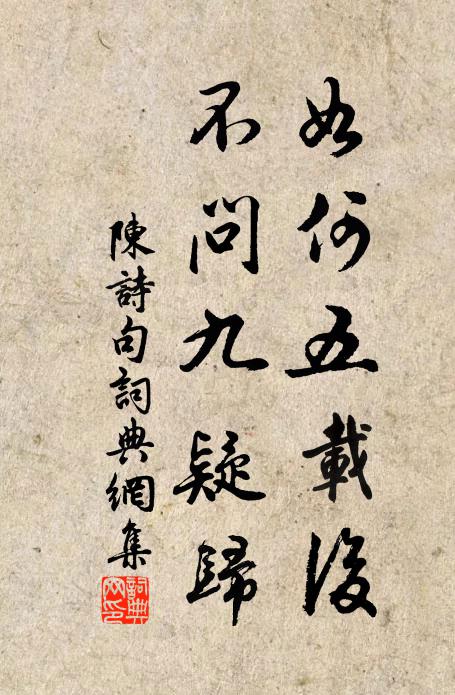 如何五載後
不問九疑歸
陳詩句詞典網集
詞典網印